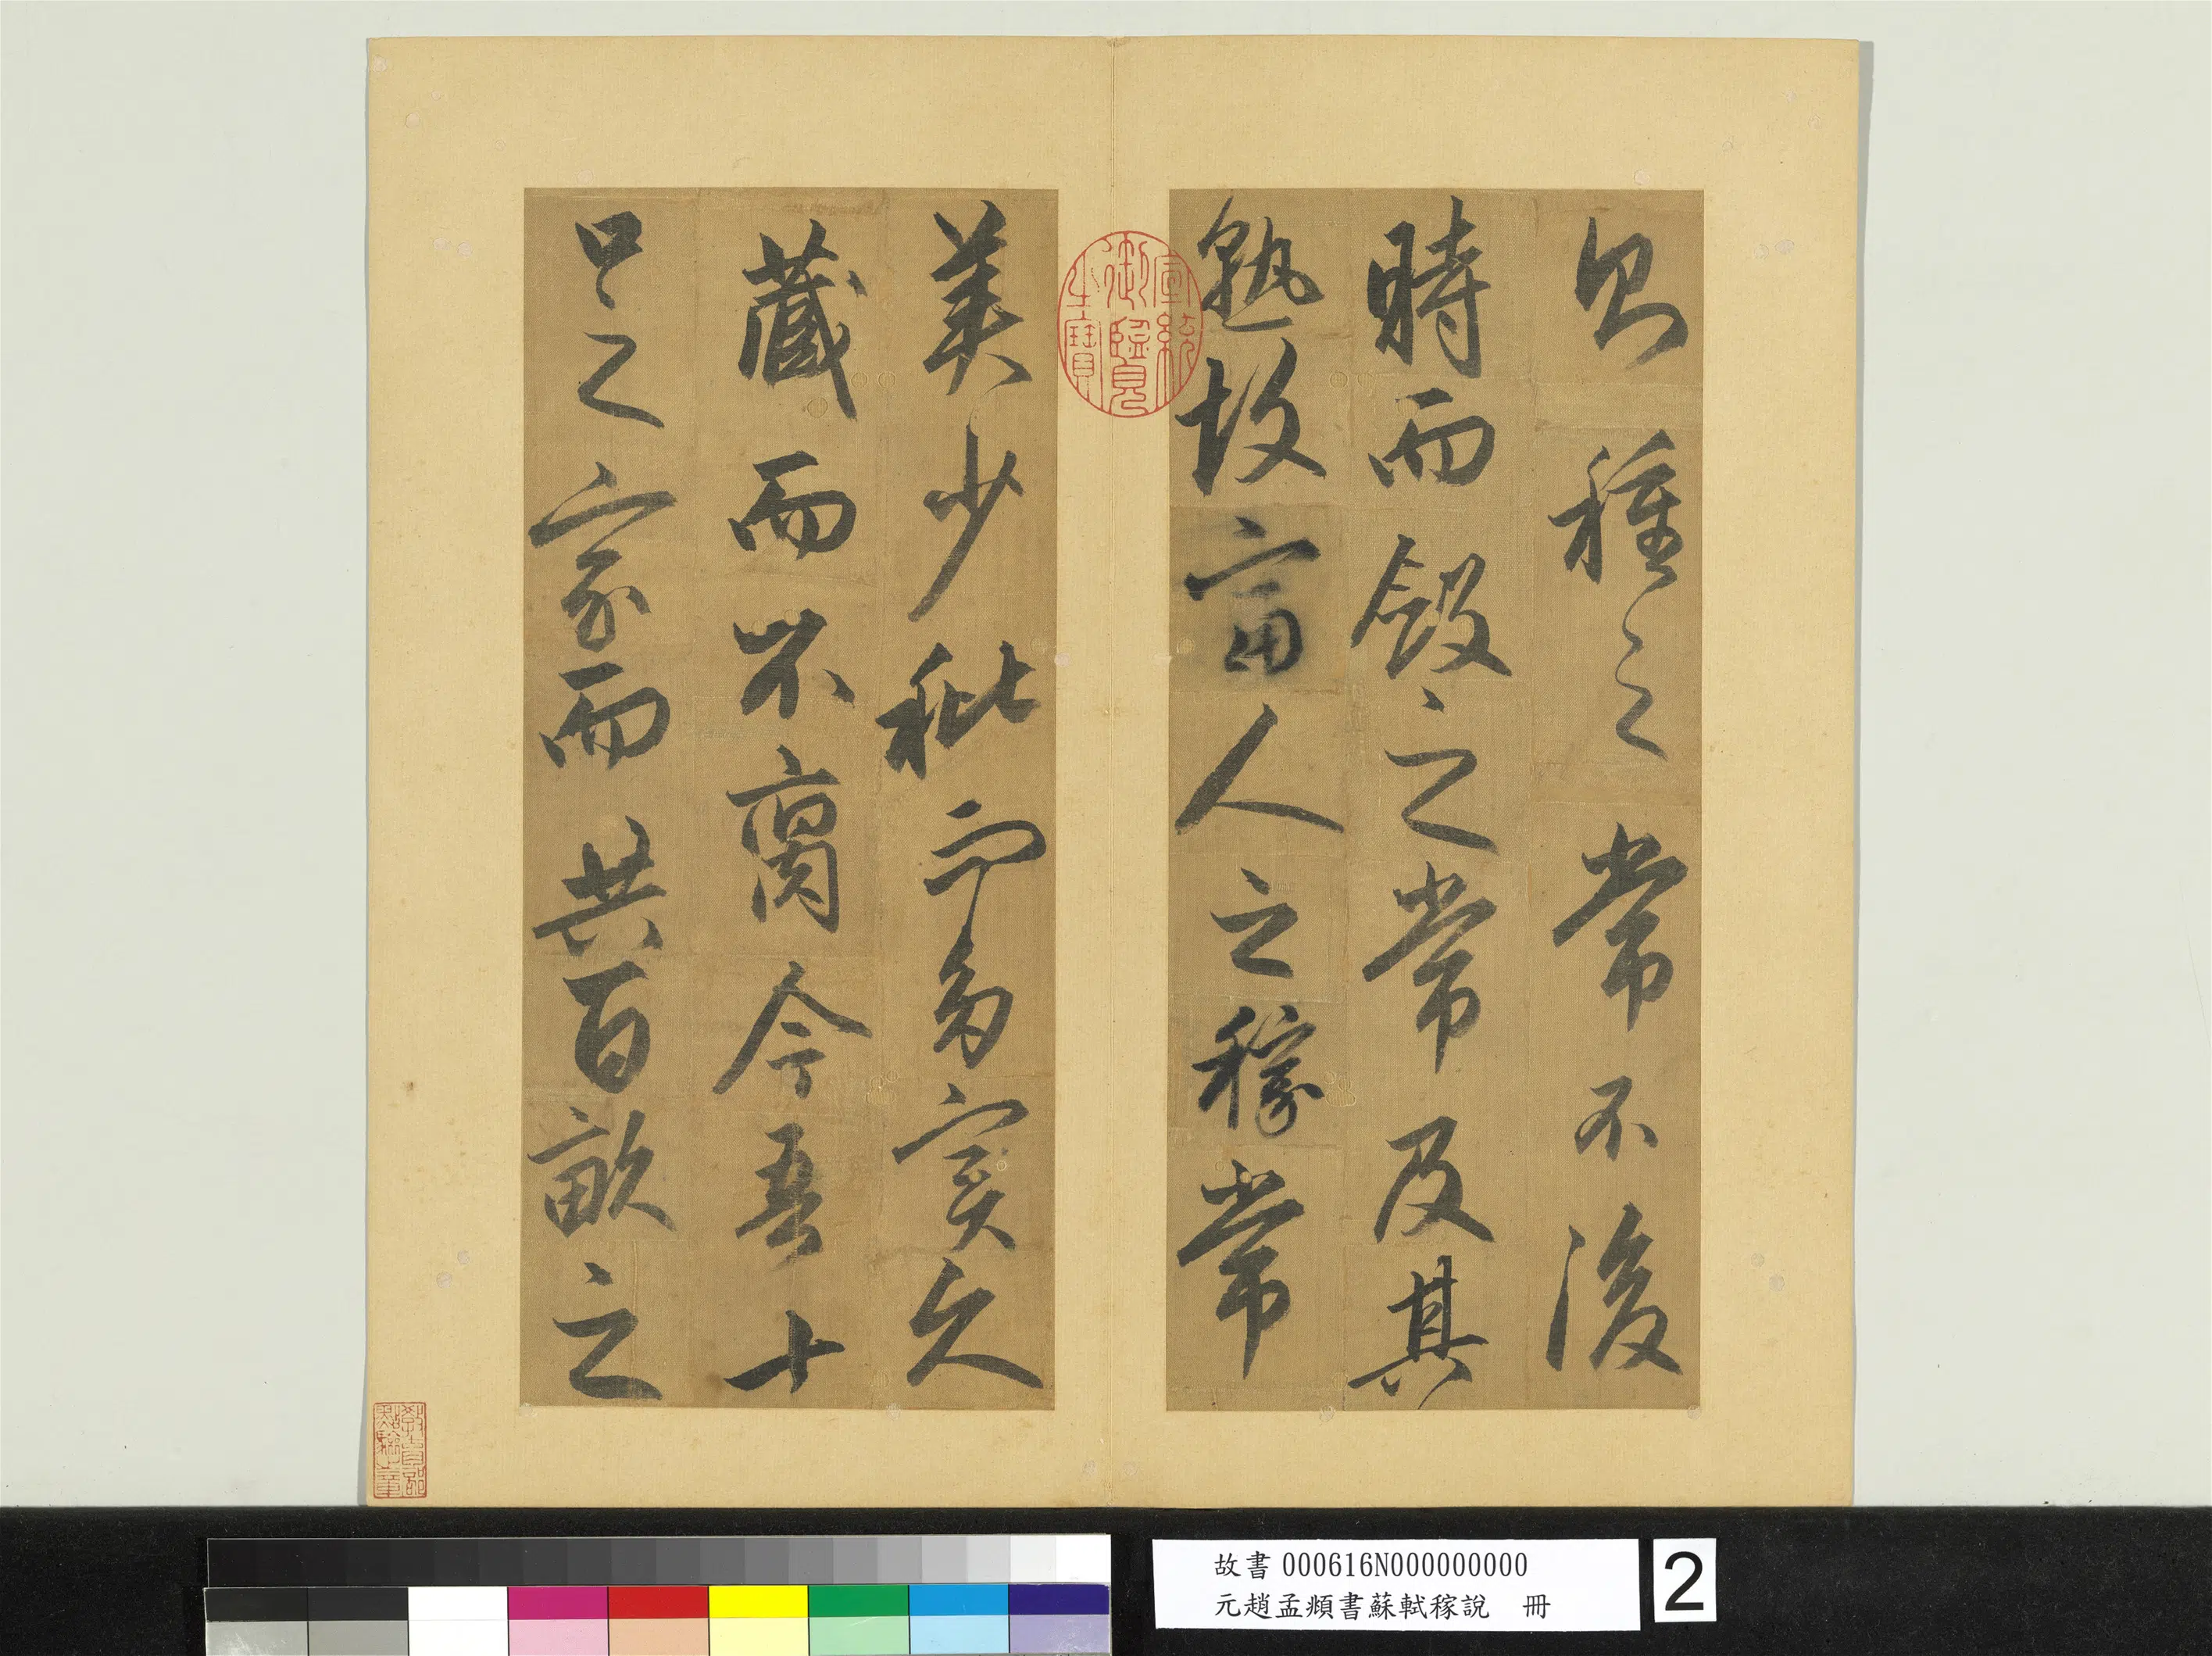 則種之常不後
時而斂之常及其
熟故富人之稼常
美少秕而多實久
藏而不腐今吾十
口之家而共百畝之
宣統御覽之寶
教育部點驗之章
故書000616N000000000
元趙孟頫書蘇軾稼說 冊
2